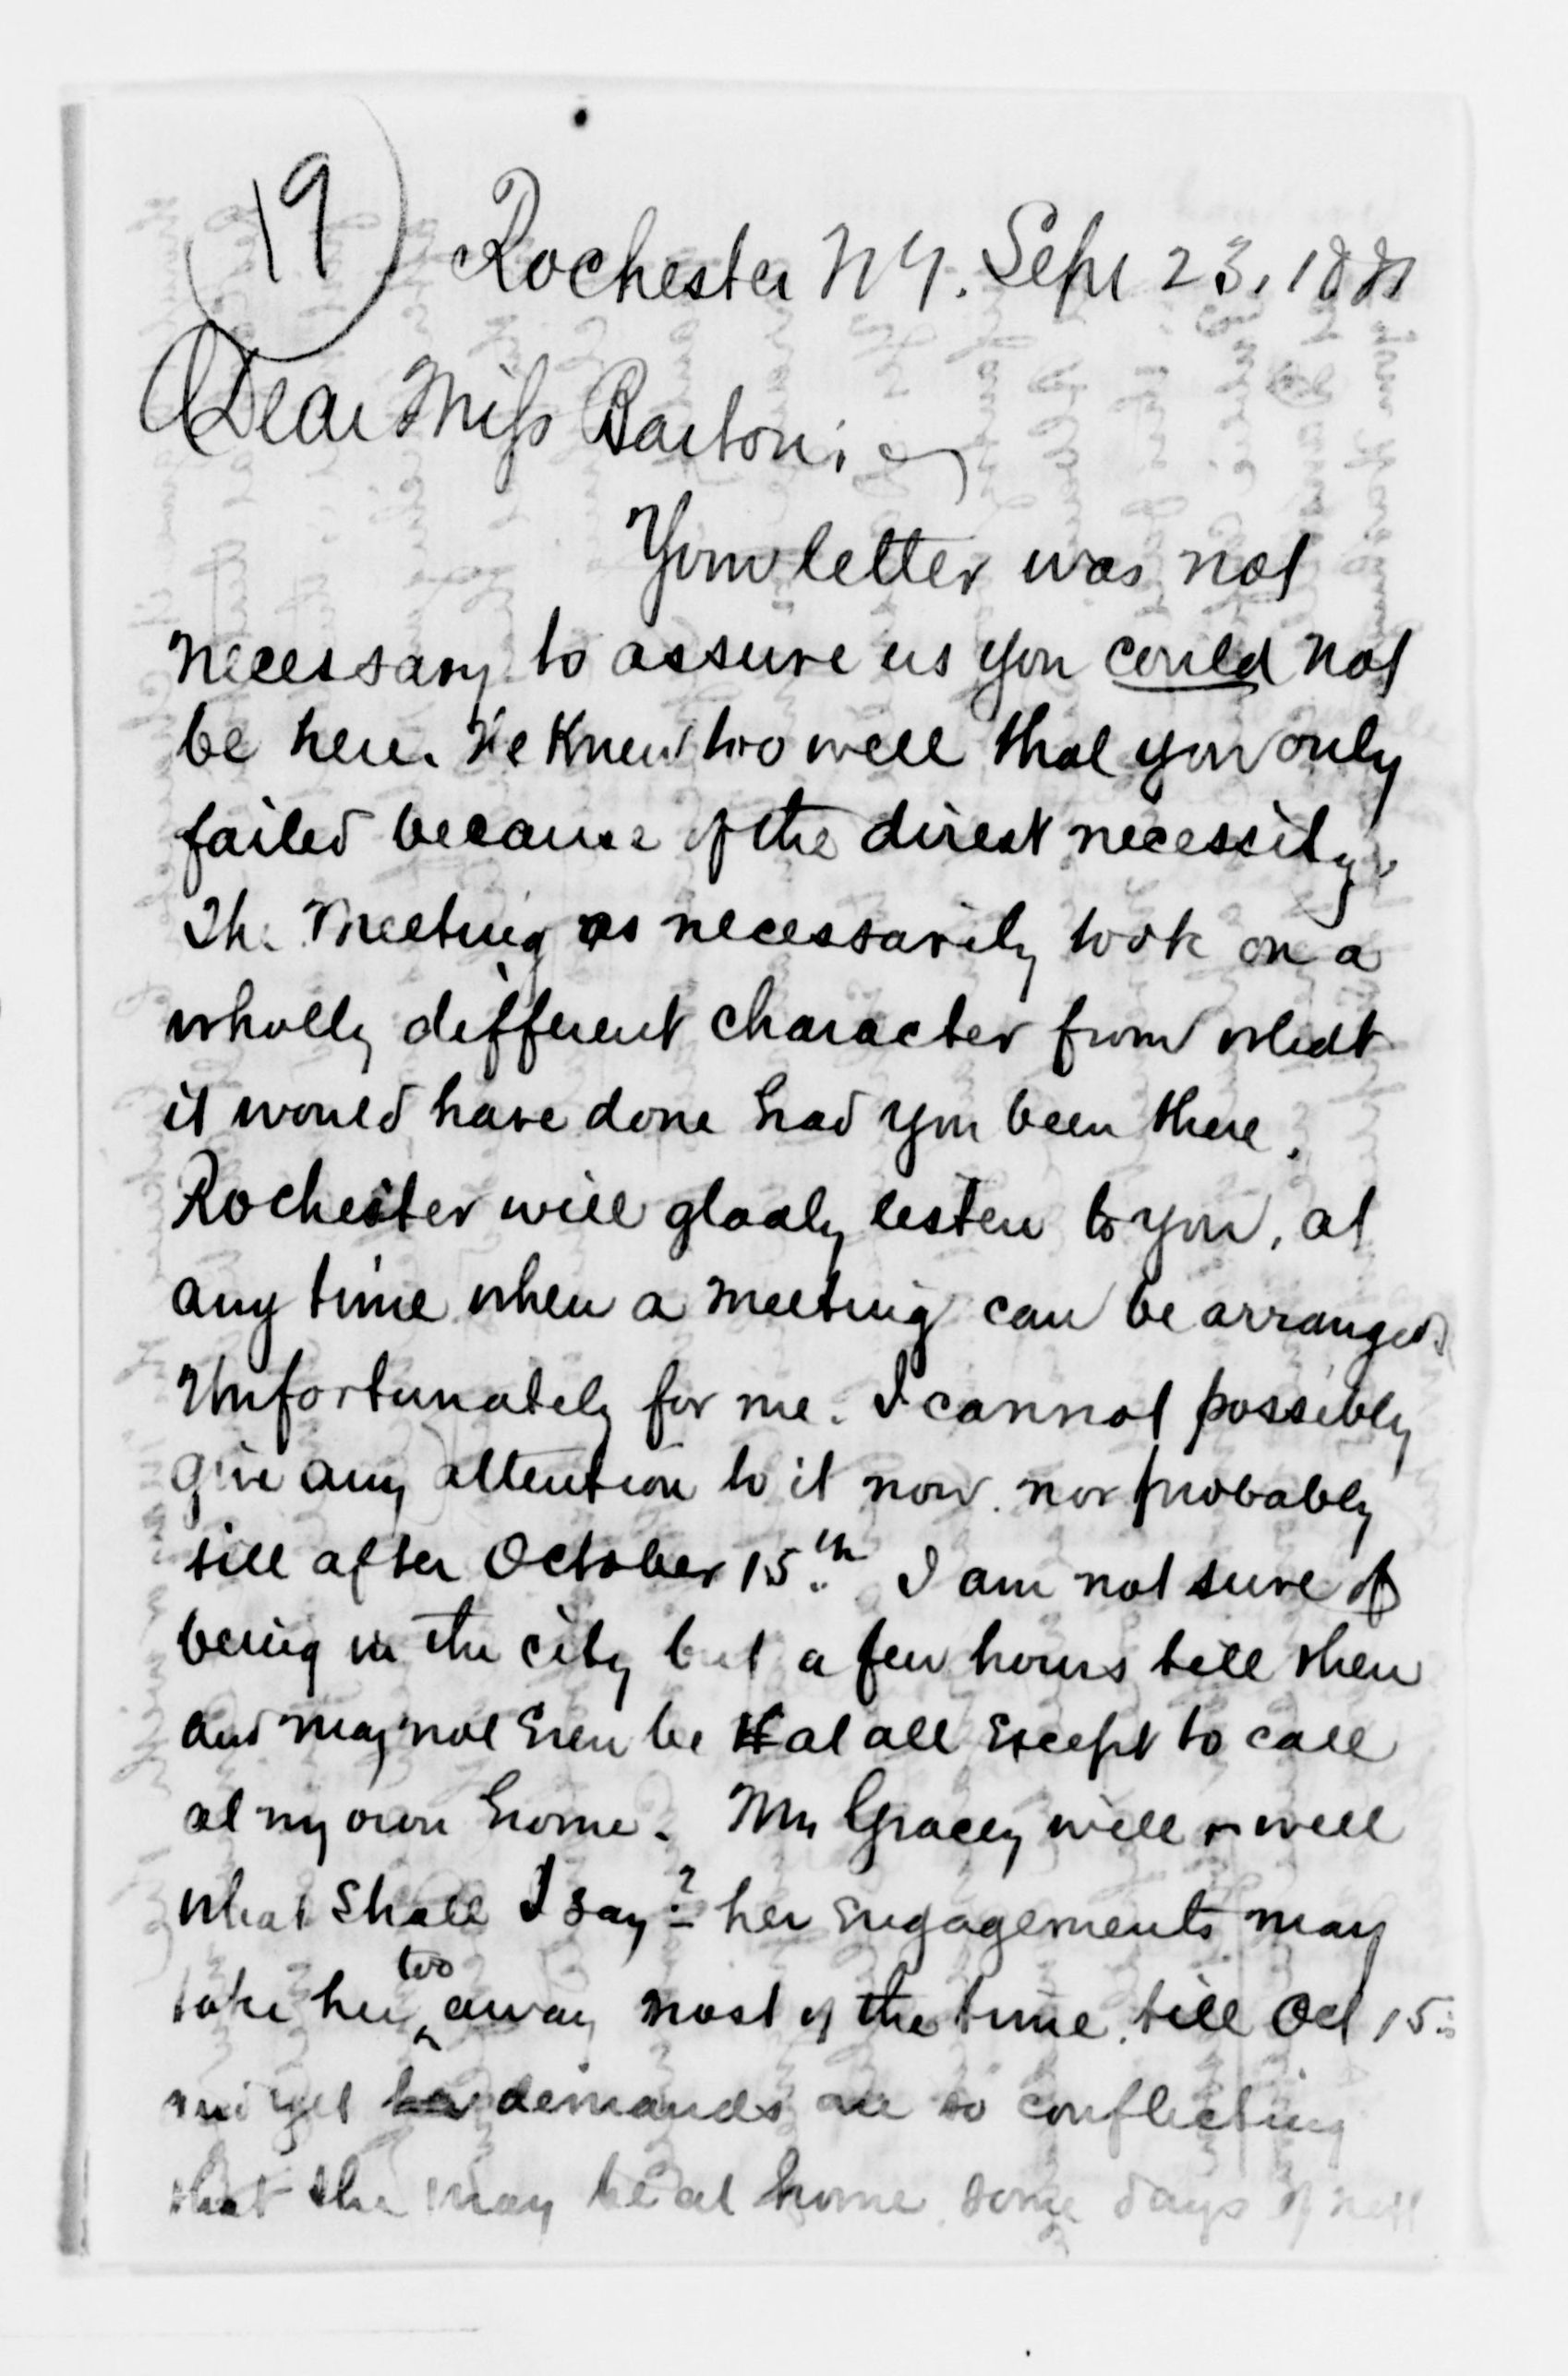 19
Rochester N Y. Sept 23, 1881
Dear Miss Barton;
Your letter was not
necessary to assure us you could not
be here. We knew too well that you only
failed because of the direst necessity.
The Meeting as necessarily took on a
wholly different character from what
it would have done had you been there.
Rochester will gladly listen to you, at
any time when a meeting can be arranged.
Unfortunately for me. I cannot possibly
give any attention to it now. nor probably
till after October 15th. I am not sure of
being in the city but a few hours till then
and may not even be at all except to call
at my own home. Mrs Gracey will - well
what shall I say? - her engagements may
take her too away most of the time. till Oct 15.
and yet her demands are so conflicting
that she may be at home some days of next